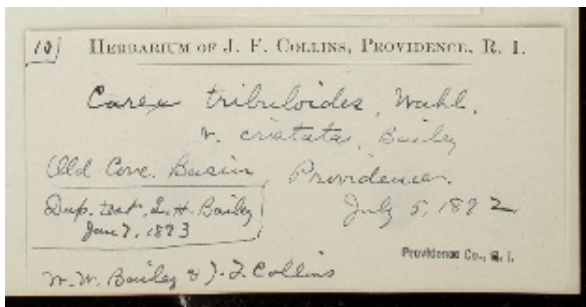 10] HERBARIUM OF J. F. COLLINS, PROVIDENCE, R. I.
Carex tribuloides, Wahl.
v. cristata, Bailey
Old Cove Basin, Providence.
Dup. test. L. H. Bailey
Jan 7, 1893
July 5, 1892
Providence Co., R. I.
W. W. Bailey & J. F. Collins